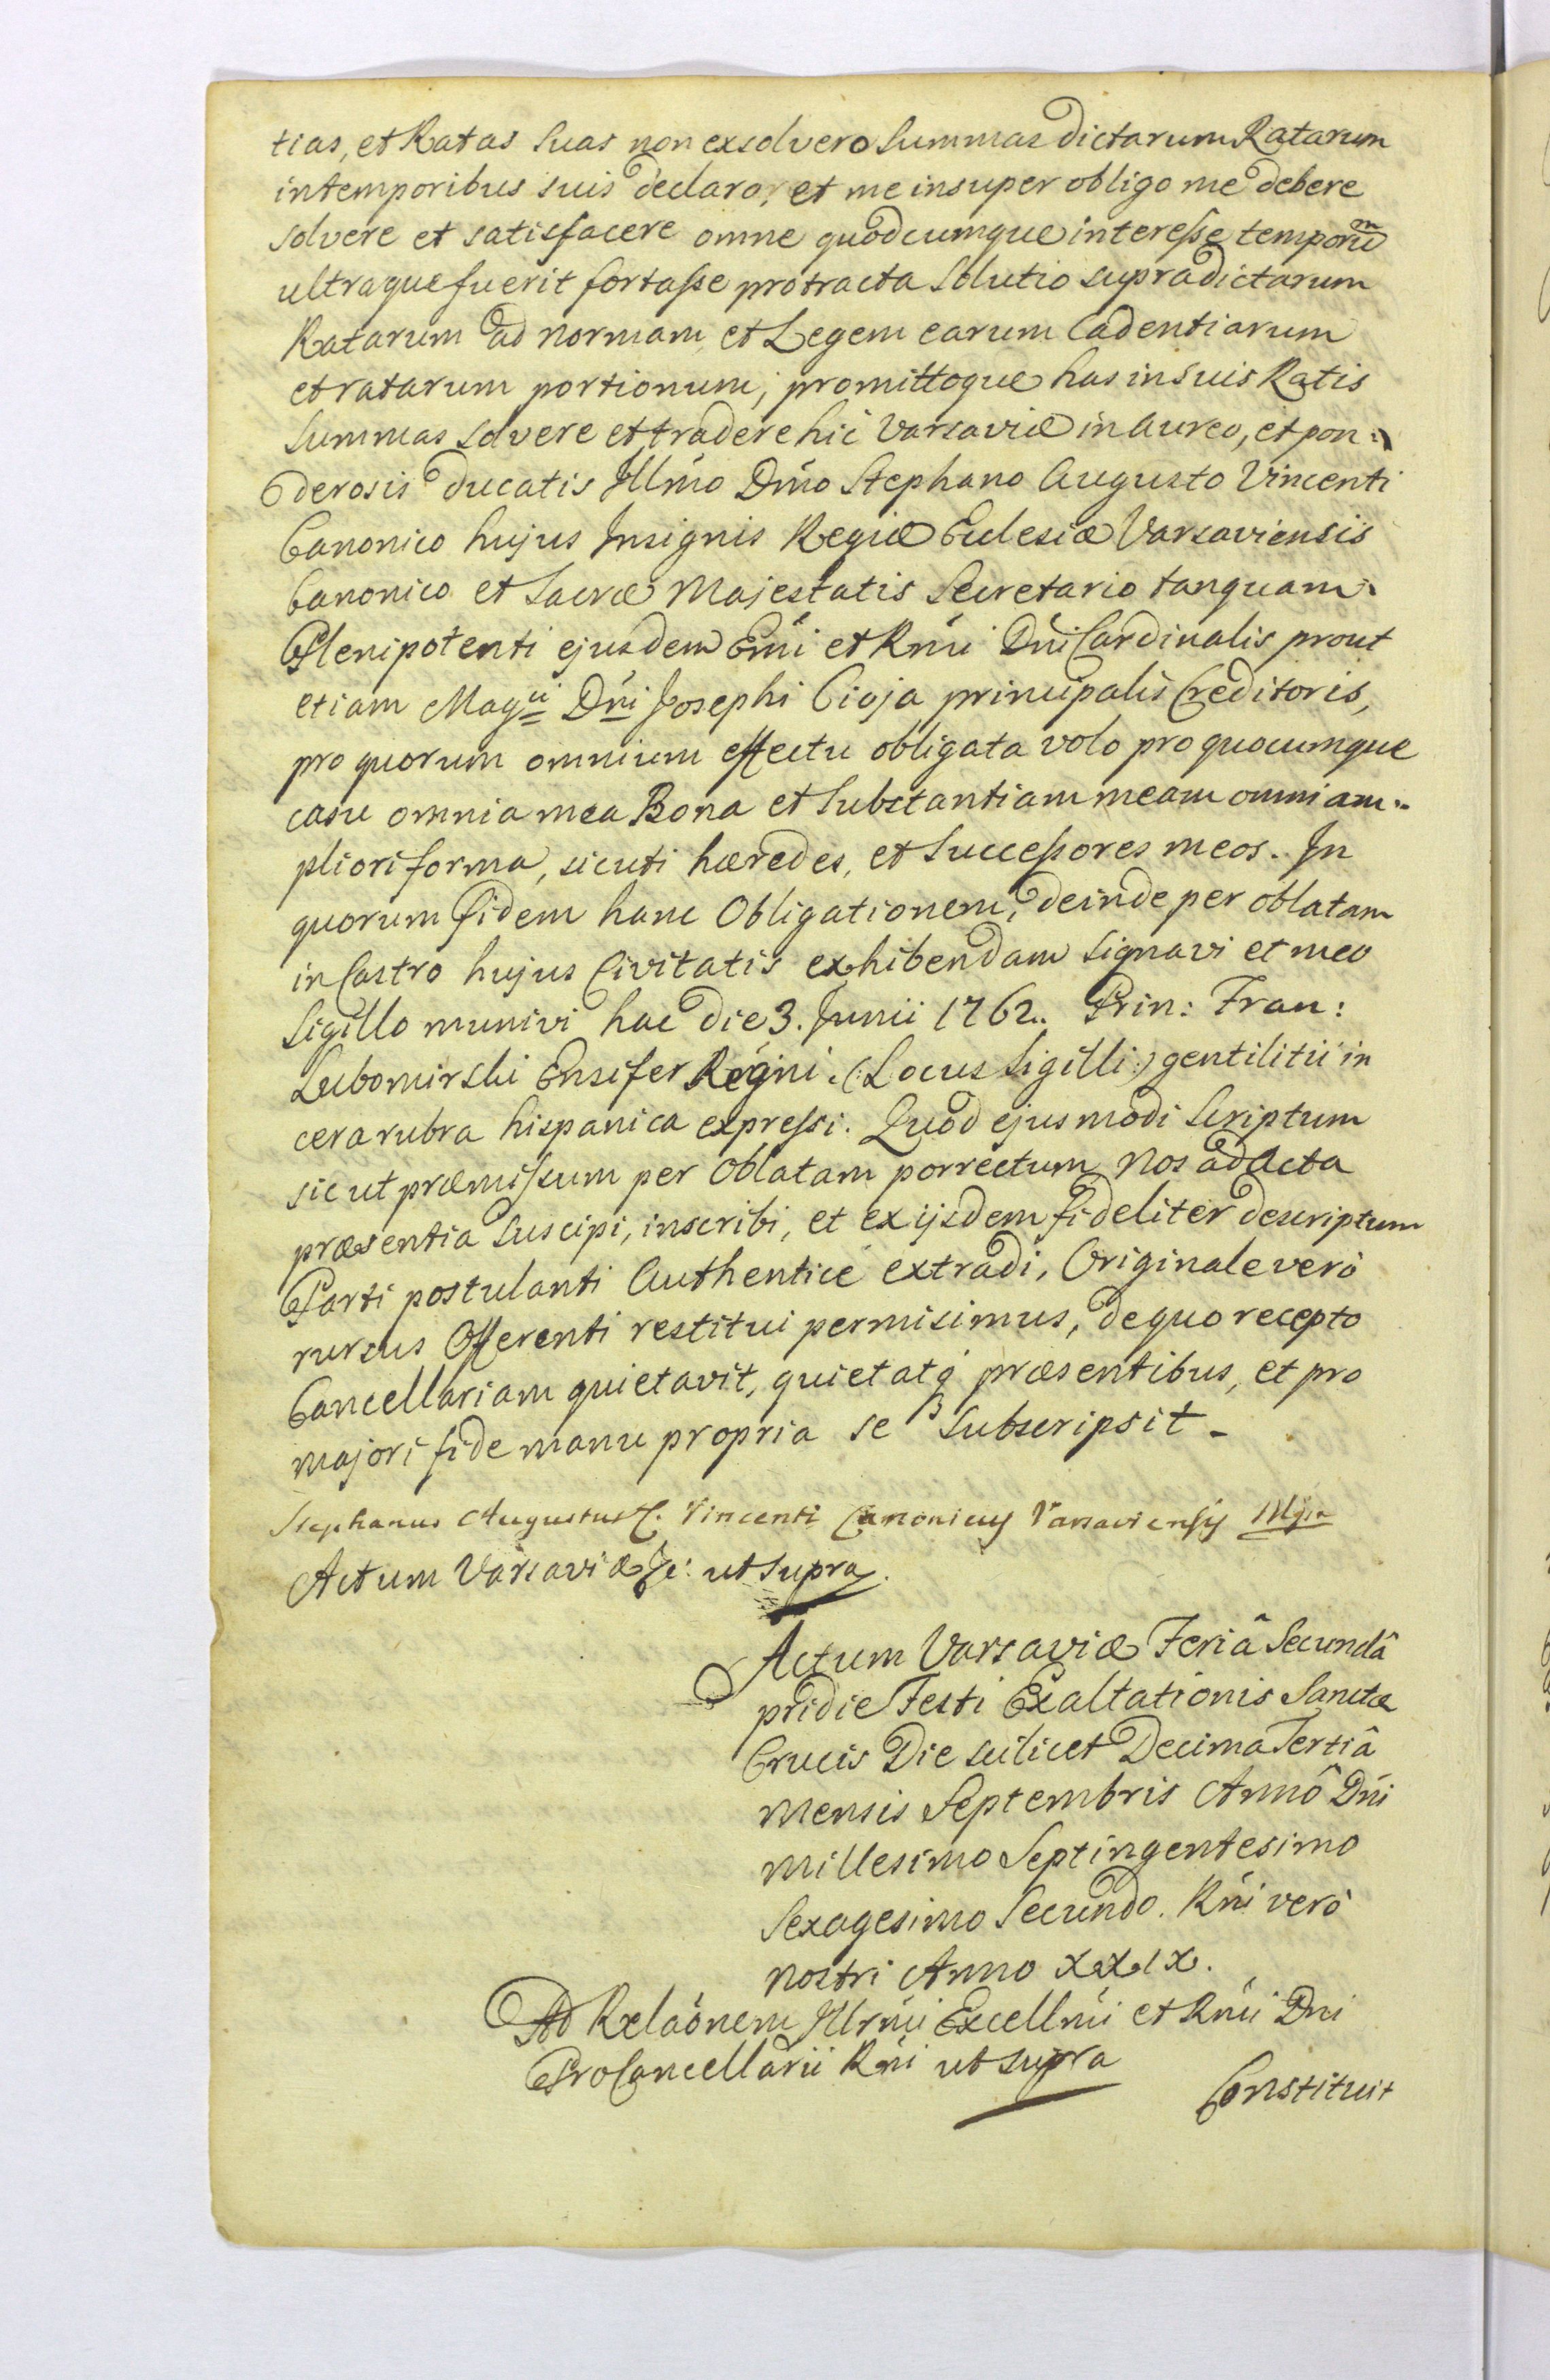 tias, et Ratas suas non exsolvero Summas dictarum Ratarum
in temporibus suis declaro, et me insuper obligo me debere
solvere et satisfacere omne quodcumque interesse temporū
ultra que fuerit fortasse protracta Solutio supradictarum
Ratarum ad normam et Legem earum Cadentiarum
et ratarum portionum; promittoque has in suis Ratis
Summas solvere et tradere hic Varsaviæ in Aureo, et pon-
derosis ducatis Illmo Dmo Stephano Augusto Vincenti
Canonico hujus Insignis Regiæ Eclesiæ Varsaviensis
Canonico et Sacræ Majestatis Secretario tanquam
Plenipotenti ejusdem Emi et Rmi Dni Cardinalis prout
etiam Magci Dni Josephi Cioja principalis Creditoris,
pro quorum omnium effectu obligata volo pro quocumque
casu omnia mea Bona et Substantiam meam omni am-
pliori forma, sicuti hæredes, et Successores meos. In
quorum fidem hanc Obligationem, deinde per oblatam
in Castro hujus Civitatis exhibendam signavi et meo
Sigillo munivi hac die 3. Junii 1762. Prin: Fran:
Lubomirski Ensifer Regni. (:Locus Sigilli:) gentilitii in
cera rubra hispanica expressi. Quod ejusmodi Scriptum
sic ut præmissum per Oblatam porrectum Nos ad Acta
præsentia suscipi, inscribi, et ex ijsdem fideliter descriptum
Parti postulanti Authenticè extradi, Originale verò
rursus Offerenti restitui permisimus, de quo recepto
Cancellariam quietavit, quietatq3 præsentibus, et pro
majori fide manu propria se Subscripsit -
Stephanus Augustus C. Vincenti Canonicus Varsaviensis Mpr
Actum Varsaviæ &c: ut supra.
Actum Varsaviæ Feriâ Secundâ
pridie Festi Exaltationis Sanctæ
Crucis Die scilicet Decima Tertiâ
mensis Septembris Annô Dni
millesimo Septingentesimo
Sexagesimo Secundo. Rni verò
nostri Anno XXIX.
Ad Relaõnem Illrmi Excellmi et Rmi Dni
ProCancellarii Rni ut supra
Constituit